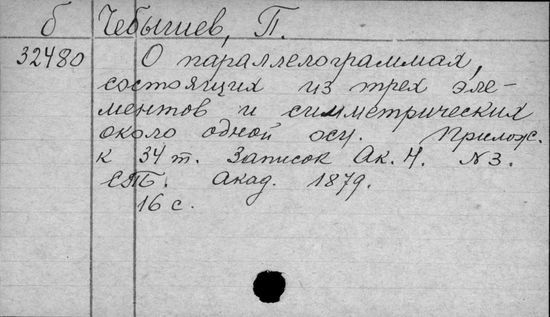 б Чебышев, П.
32480 О параллелограммах,
состоящих из трех эле-
ментов и симметрических
около одной оси. Прилож.
к 34 т. Записок Ак. Н. №3.
СПБ. Акад. 1879.
16 с.